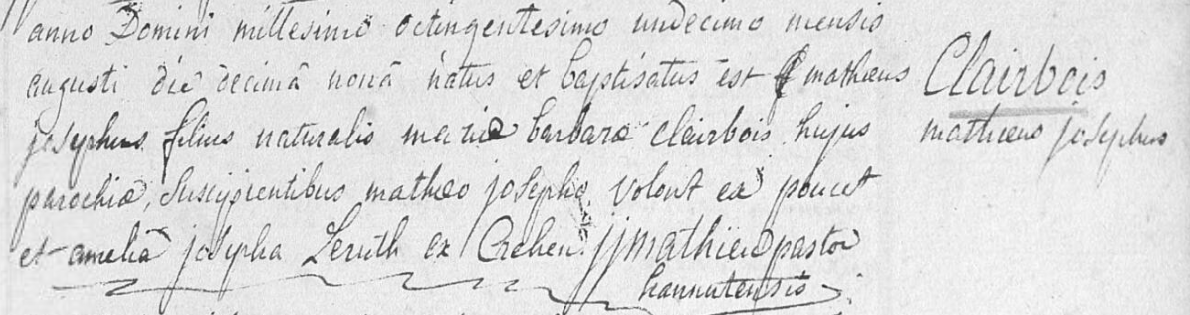 anno Domini millesimo octingentesimo undecimo mensis
augusti die decimâ nonâ natus et baptisatus est matheus
josephus filius naturalis mariæ barbaræ clairbois hujus
parochiæ, suscipientibus matheo josepho volont ex poucet
et ameliâ josepha Leruth ex Crehen. jjmathieu pastor
hannutensis.
Clairbois
matheus josephus